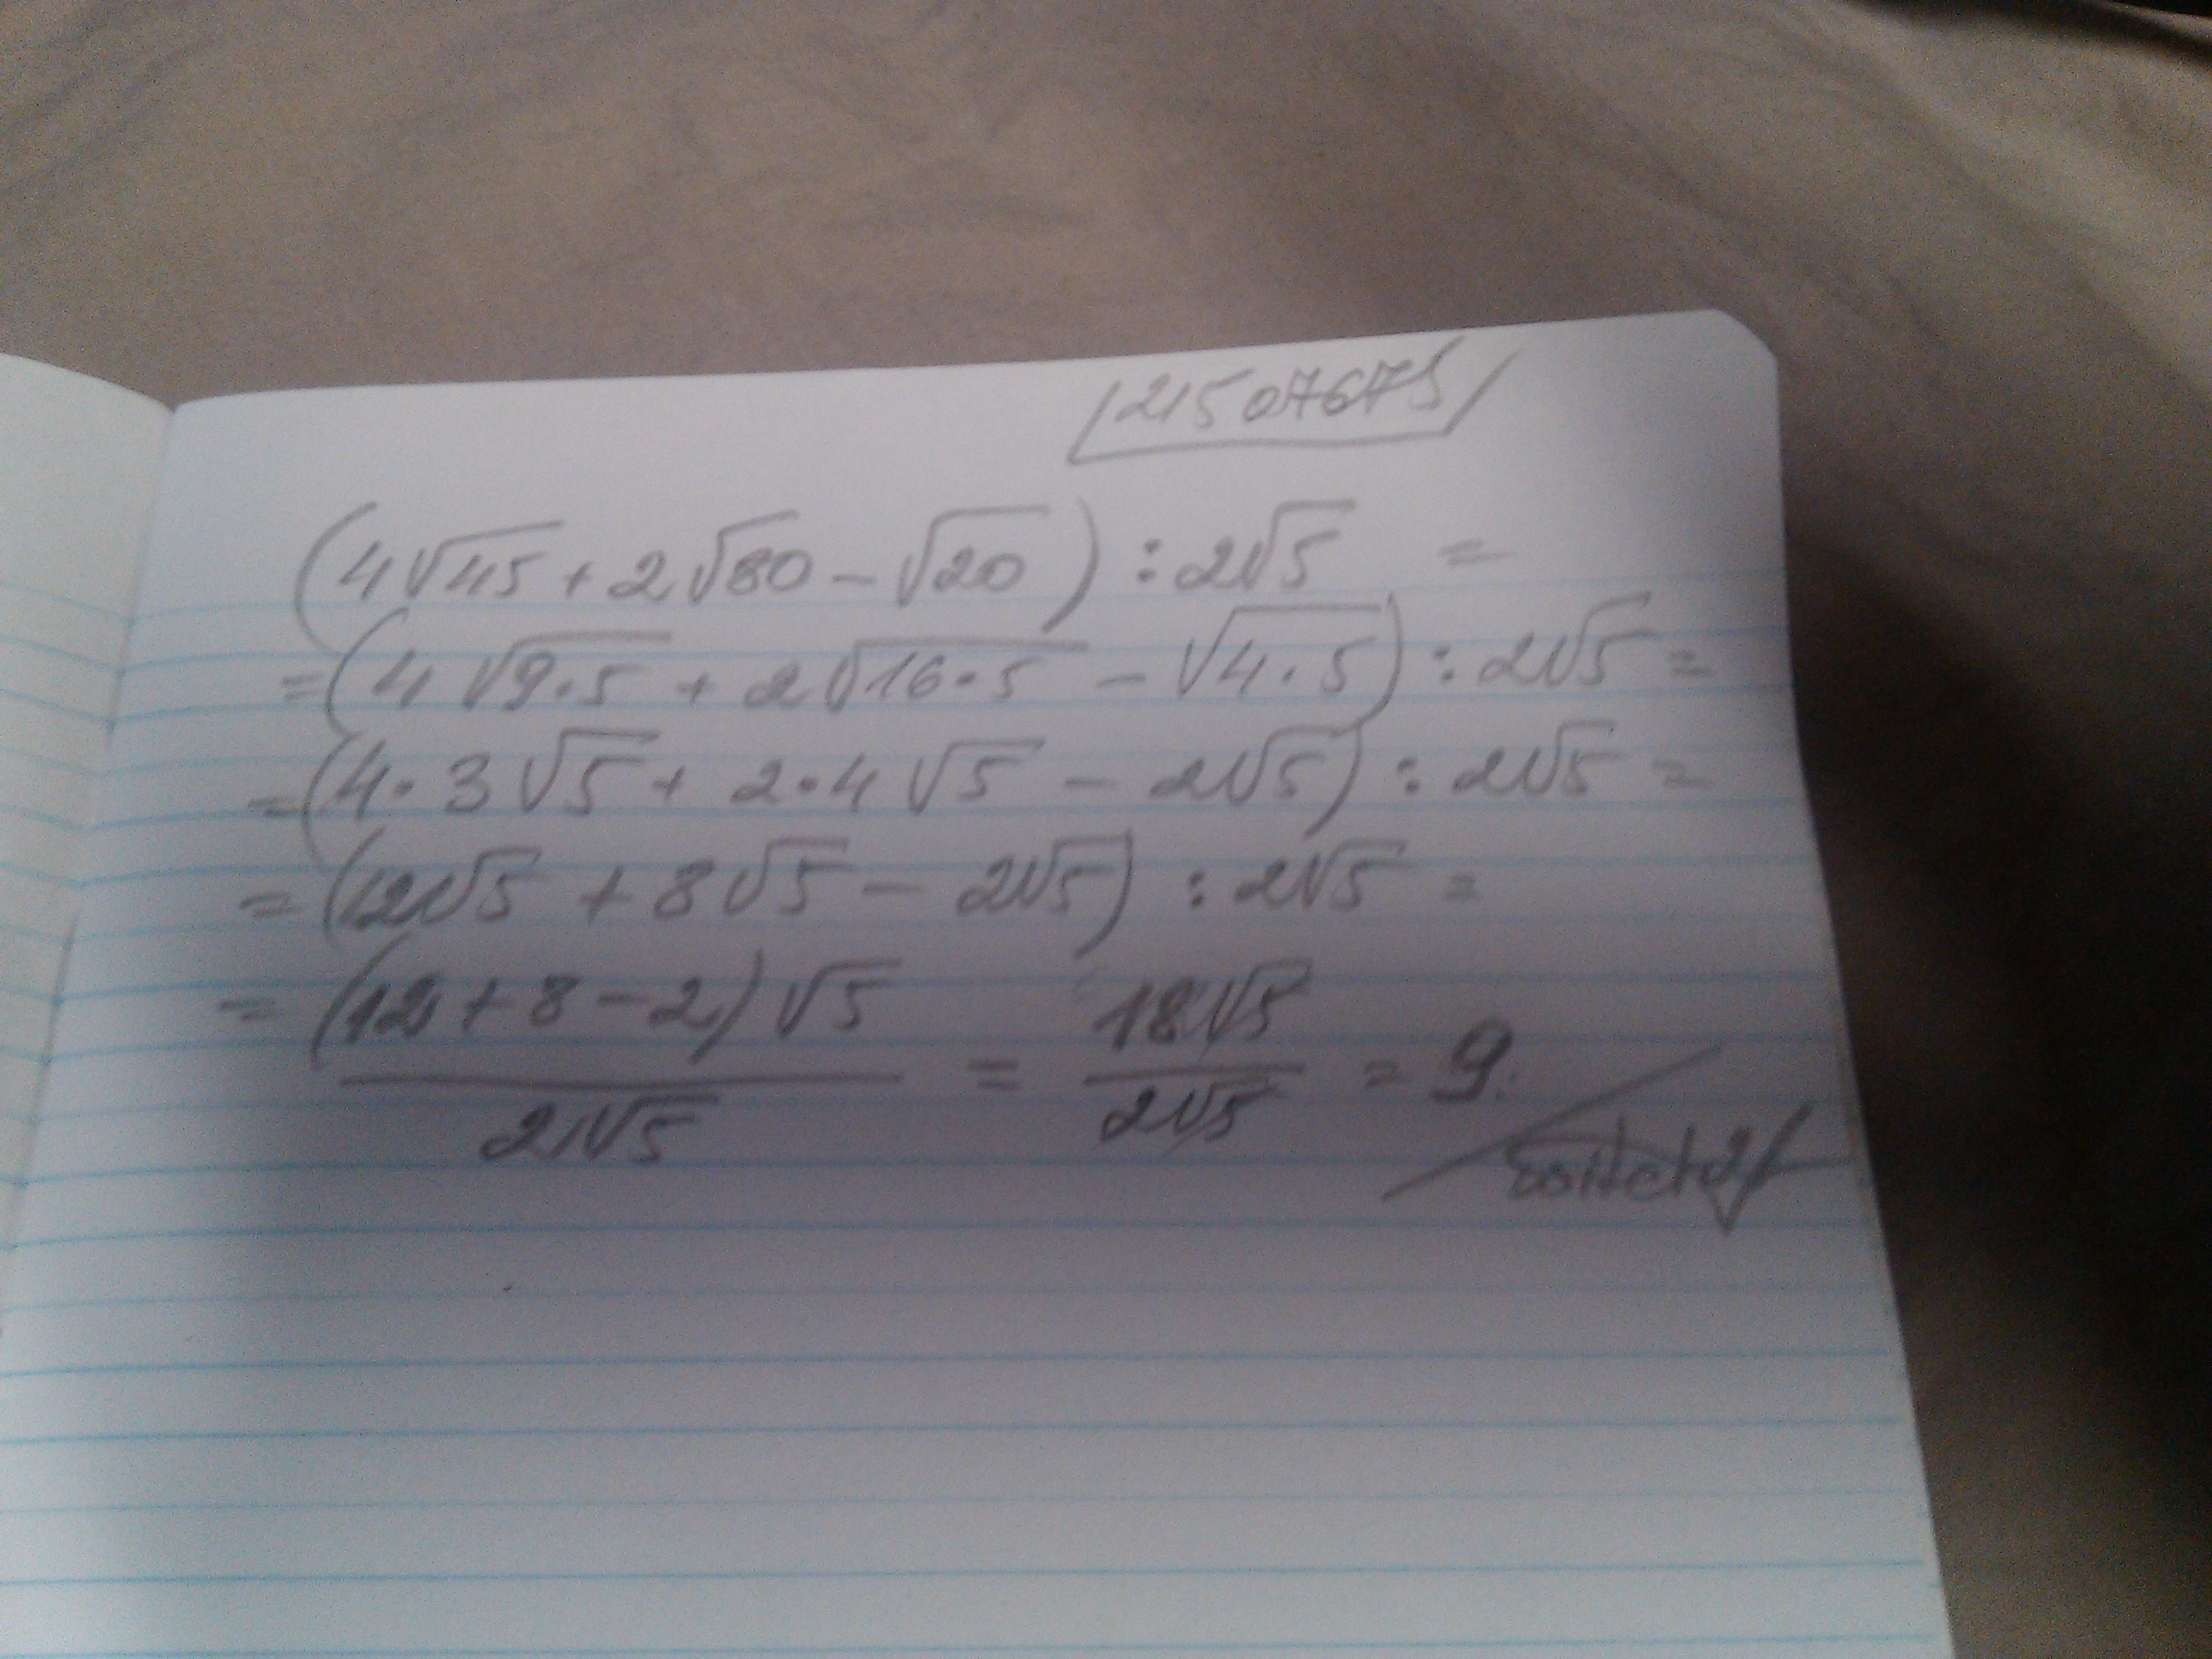 21507675
(4√45 + 2√80 - √20) : 2√5 =
= (4√9·5 + 2√16·5 - √4·5) : 2√5 =
= (4·3√5 + 2·4√5 - 2√5) : 2√5 =
= (12√5 + 8√5 - 2√5) : 2√5 =
= (12+8-2)√5 / 2√5 = 18√5 / 2√5 = 9.